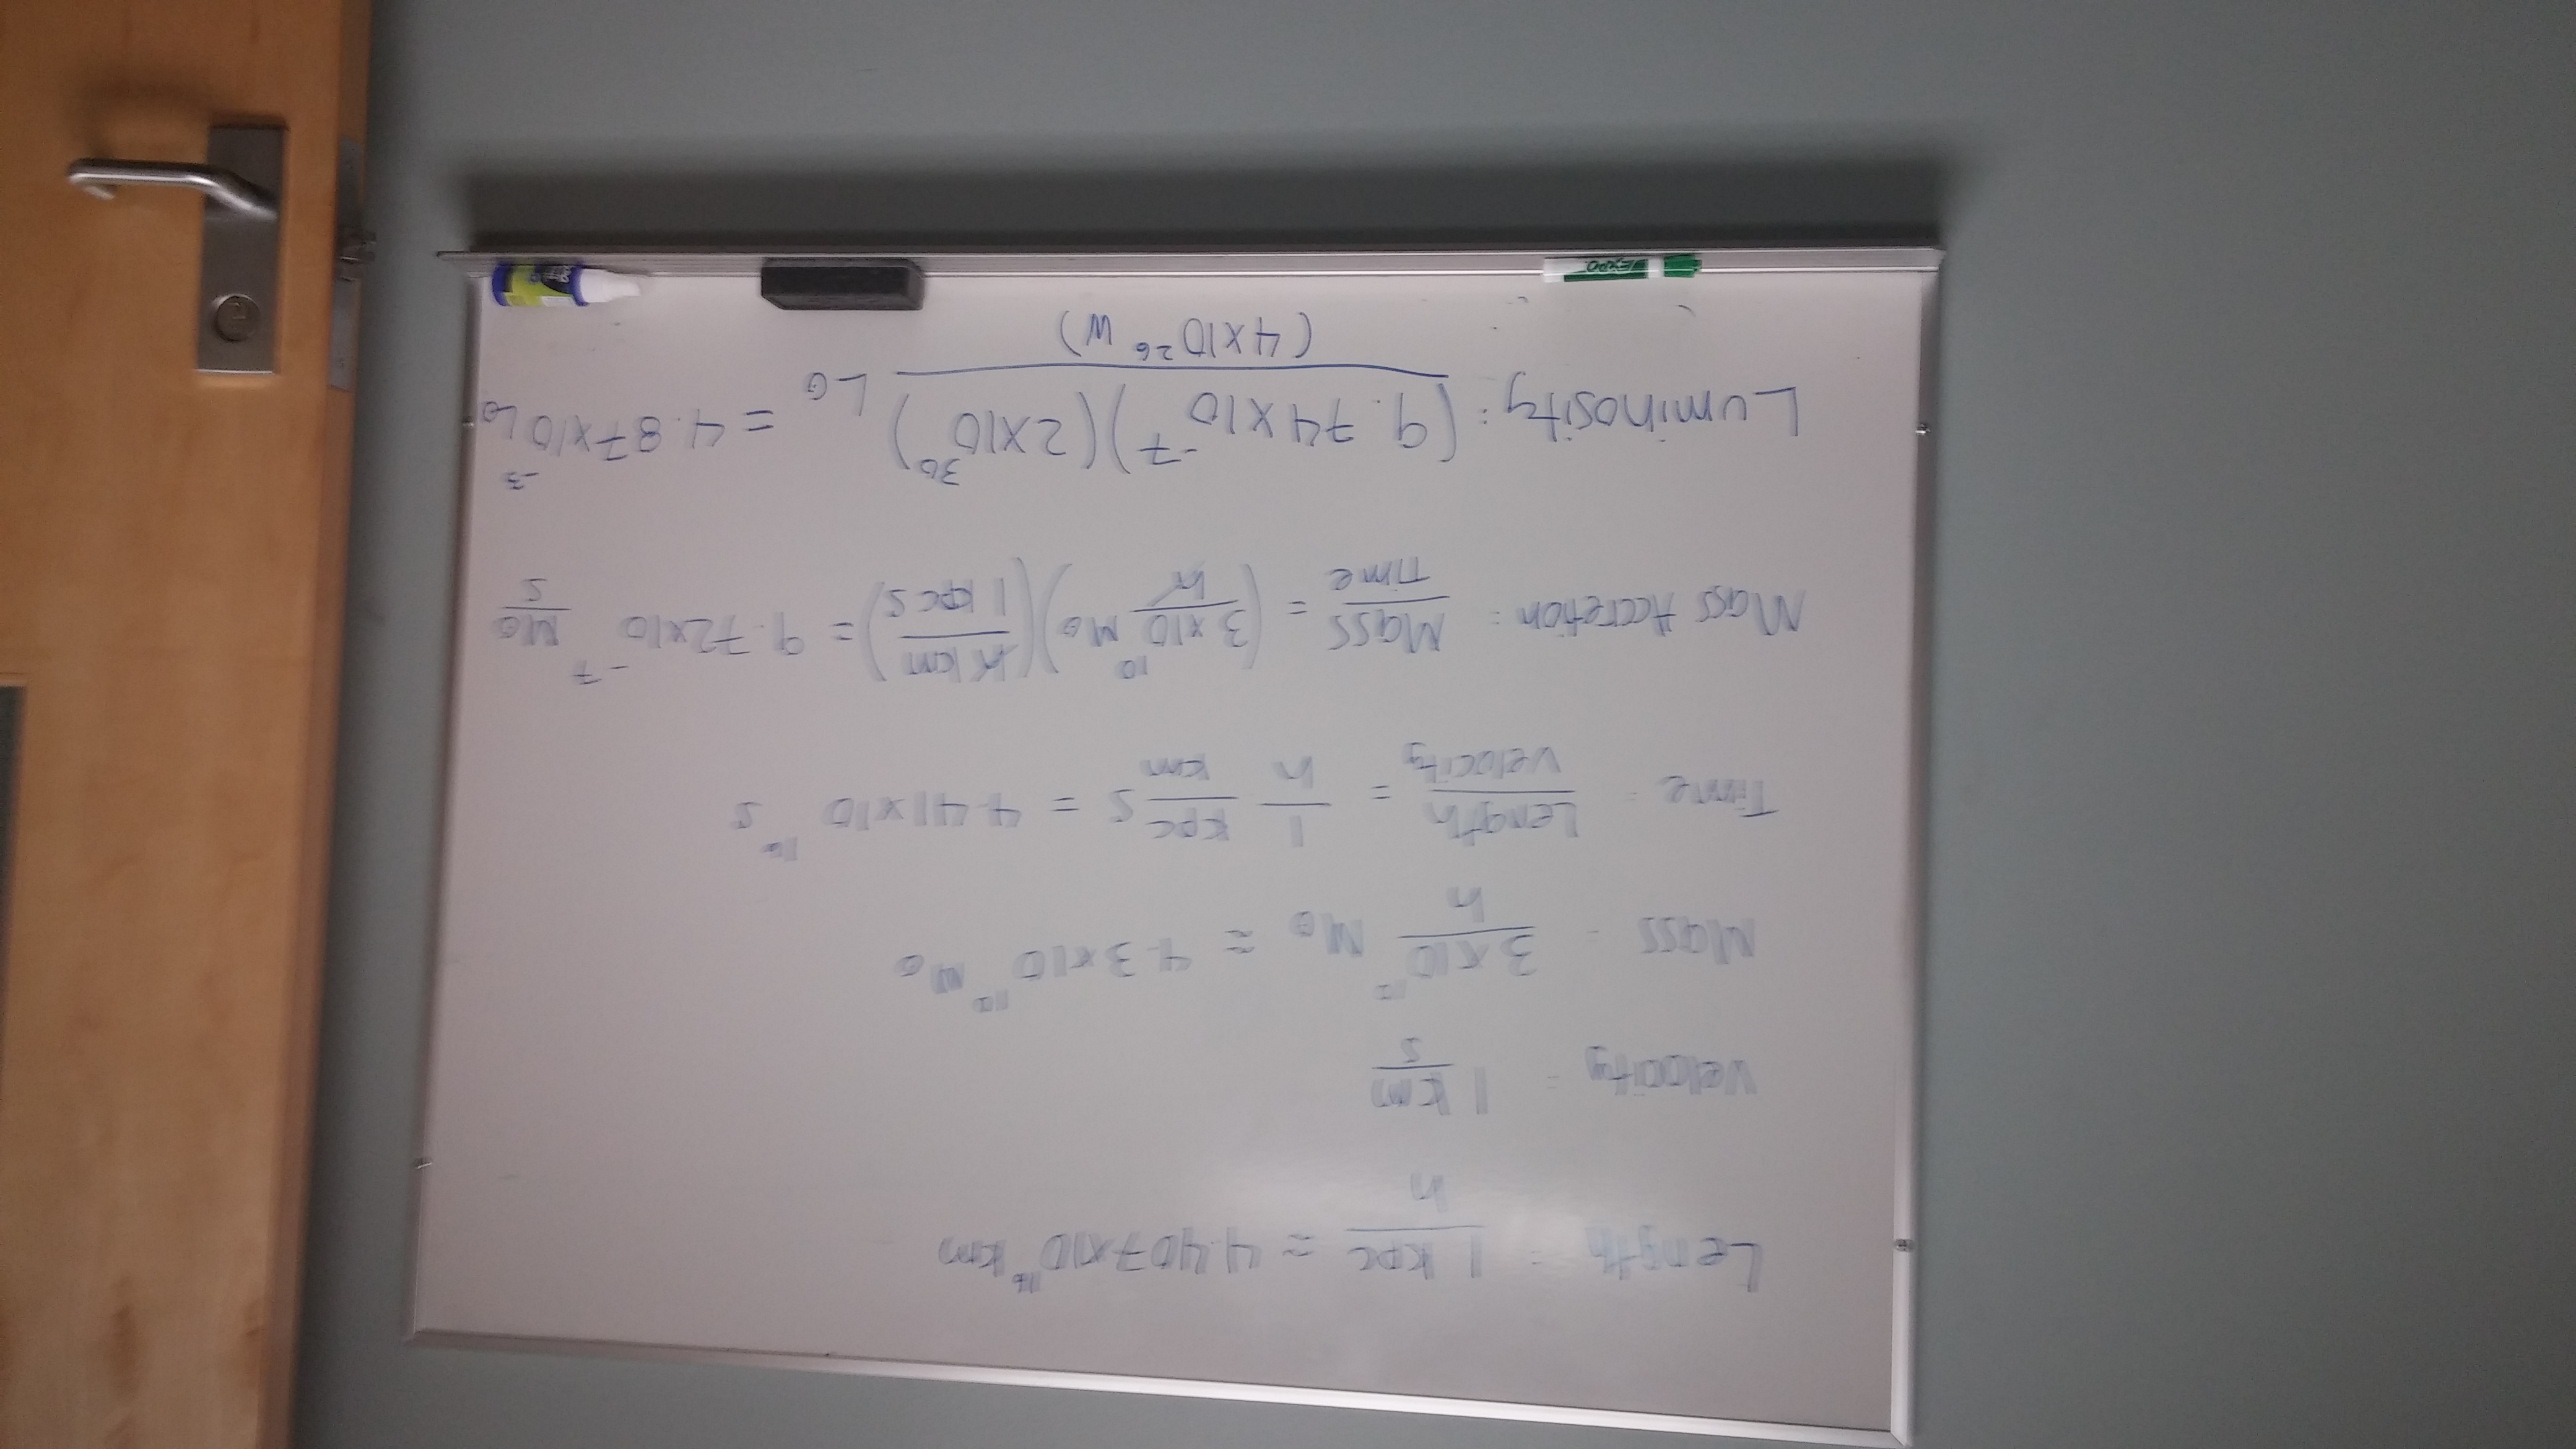 Length = 1 kpc / h ≈ 4.407×10^16 km
Velocity = 1 km / s
Mass = 3×10^10 / h M⊙ ≈ 4.3×10^10 M⊙
Time = Length / Velocity = 1 / h kpc / km s = 4.41×10^16 s
Mass Accretion = Mass / Time = (3×10^10 / h M⊙)(h km / 1 kpc s) = 9.72×10^-7 M⊙ / s
Luminosity = (9.74×10^-7)(2×10^30) / (4×10^26 W) L⊙ = 4.87×10^-3 L⊙
EXPO